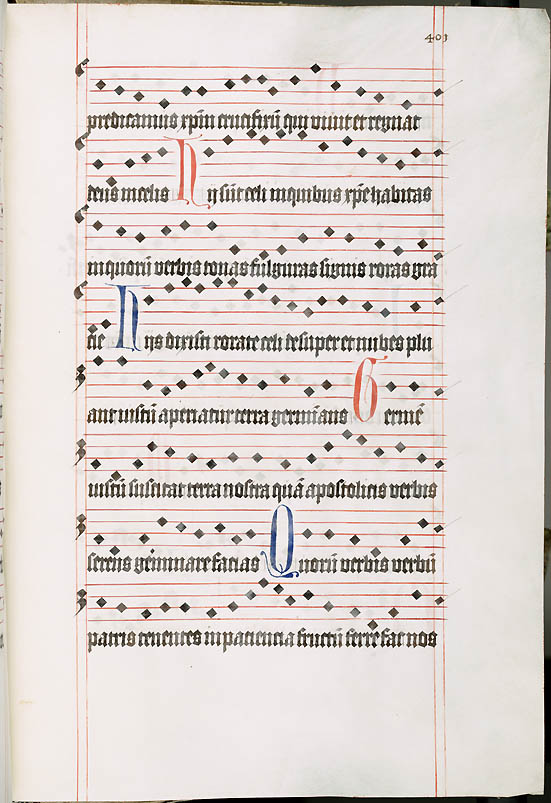 403
predicamus xp̄m crucifixū qui viuit et regnat
deus in celis Hij sūt celi in quibus xp̄e habitas
in quorū verbis tonas fulguras signis roras gra
cie Hijs dixisti rorate celi desuper et nubes plu
ant iustū aperiatur terra germinans Germē
iustū suscitat terra nostra quā apostolicis verbis
serens geminare facias Quorū verbis verbū
patris tenentes in paciencia fructū ferre fac nos